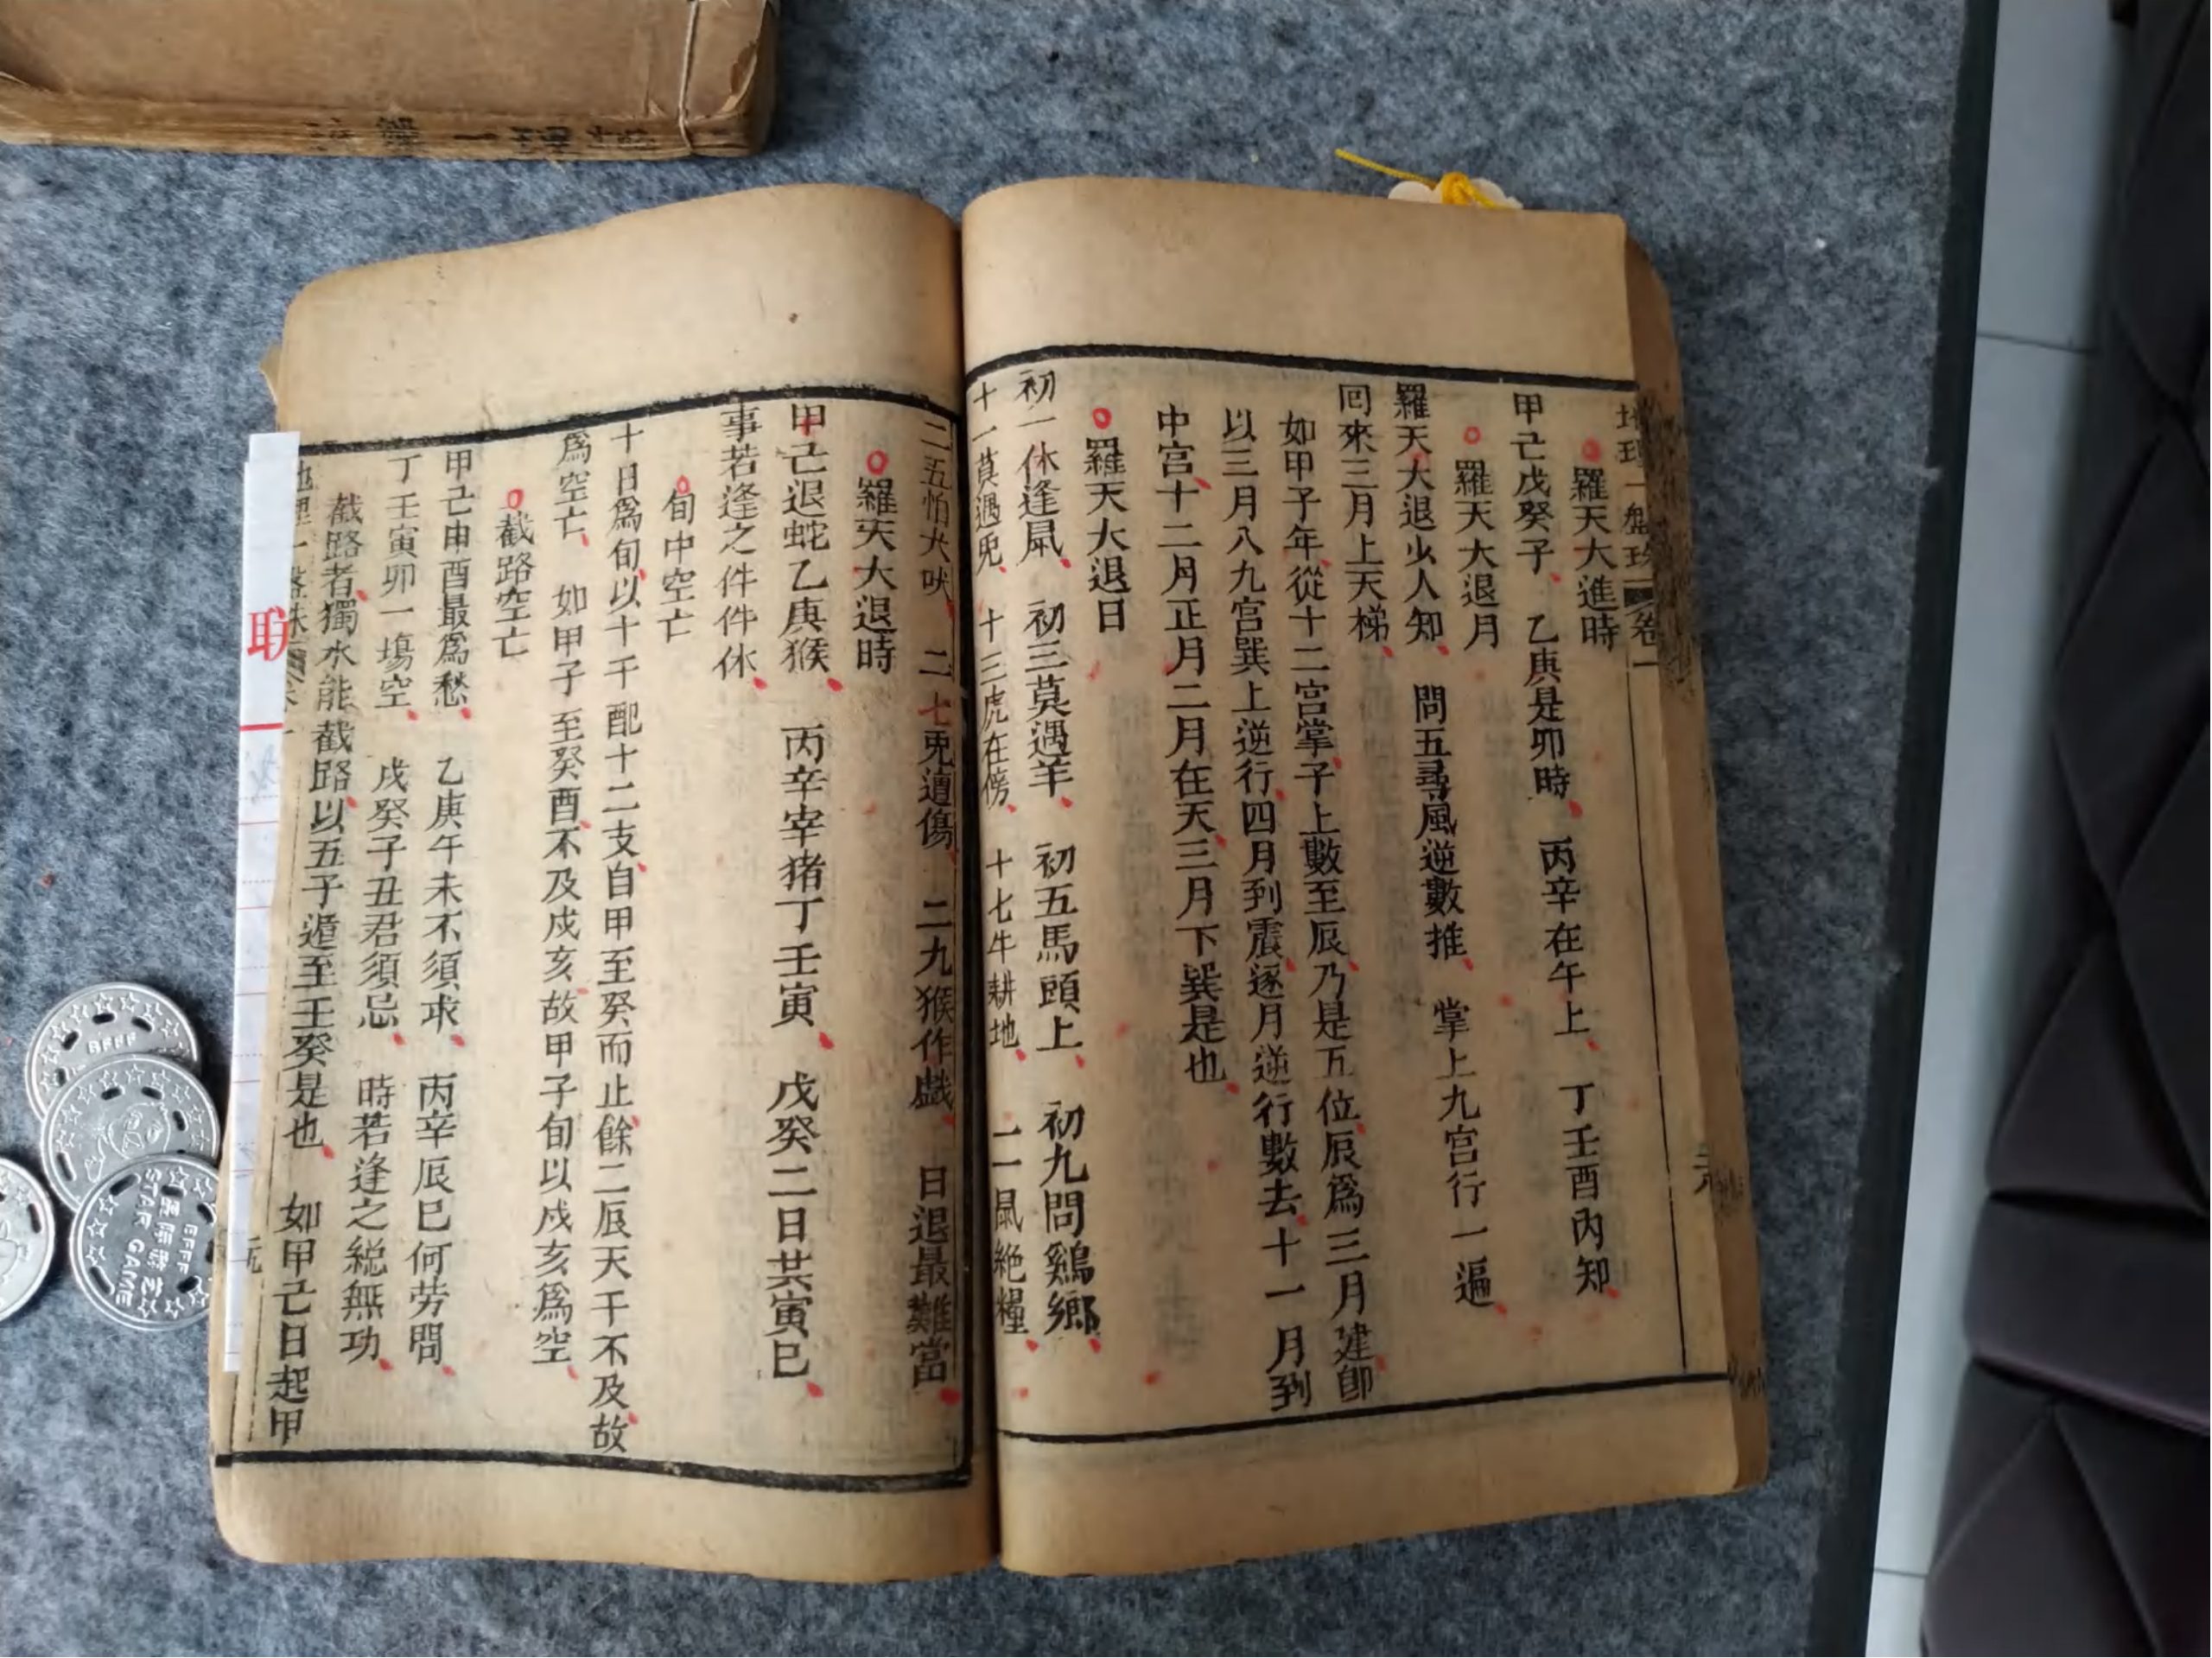 地理一盤珠 卷一
羅天大進時
甲己戊癸子 乙庚是卯時 丙辛在午上 丁壬酉內知
羅天大退月
羅天大退少人知 問五尋風逆數推 掌上九宮行一遍
回來三月上天梯
如甲子年從十二宮掌子上數至辰乃是五位辰為三月建卽
以三月八九宮巽上逆行四月到震逐月逆行數去十一月到
中宮十二月正月二月在天三月下巽是也
羅天大退日
初一休逢鼠 初三莫遇羊 初五馬頭上 初九問鷄鄉
十一莫遇兎 十三虎在傍 十七牛耕地 二一鼠絶糧
二五怕犬吠 二七兎遭傷 二九猴作戯 日退最難當
羅天大退時
甲己退蛇乙庚猴 丙辛宰猪丁壬寅 戊癸二日共寅巳
事若逢之件件休
旬中空亡
十日爲旬以十干配十二支自甲至癸而止餘二辰天干不及故
爲空亡 如甲子至癸酉不及戌亥故甲子旬以戌亥爲空
截路空亡
甲己申酉最爲愁 乙庚午未不須求 丙辛辰巳何劳問
丁壬寅卯一塲空 戌癸子丑君須忌 時若逢之総無功
截路者獨水能截路以五子遁至壬癸是也 如甲己日起甲
地理一盤珠
联
BFFF
BFFF
STAR GAME